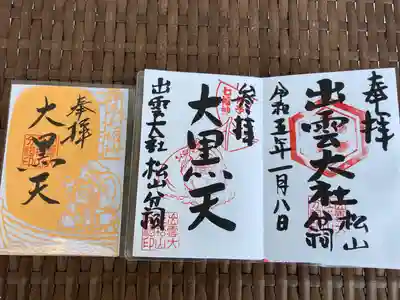 奉拝
大黒天
参拝
七福神
大黒天
出雲大社松山分祠
奉拝
出雲大社松山分祠
令和五年一月八日